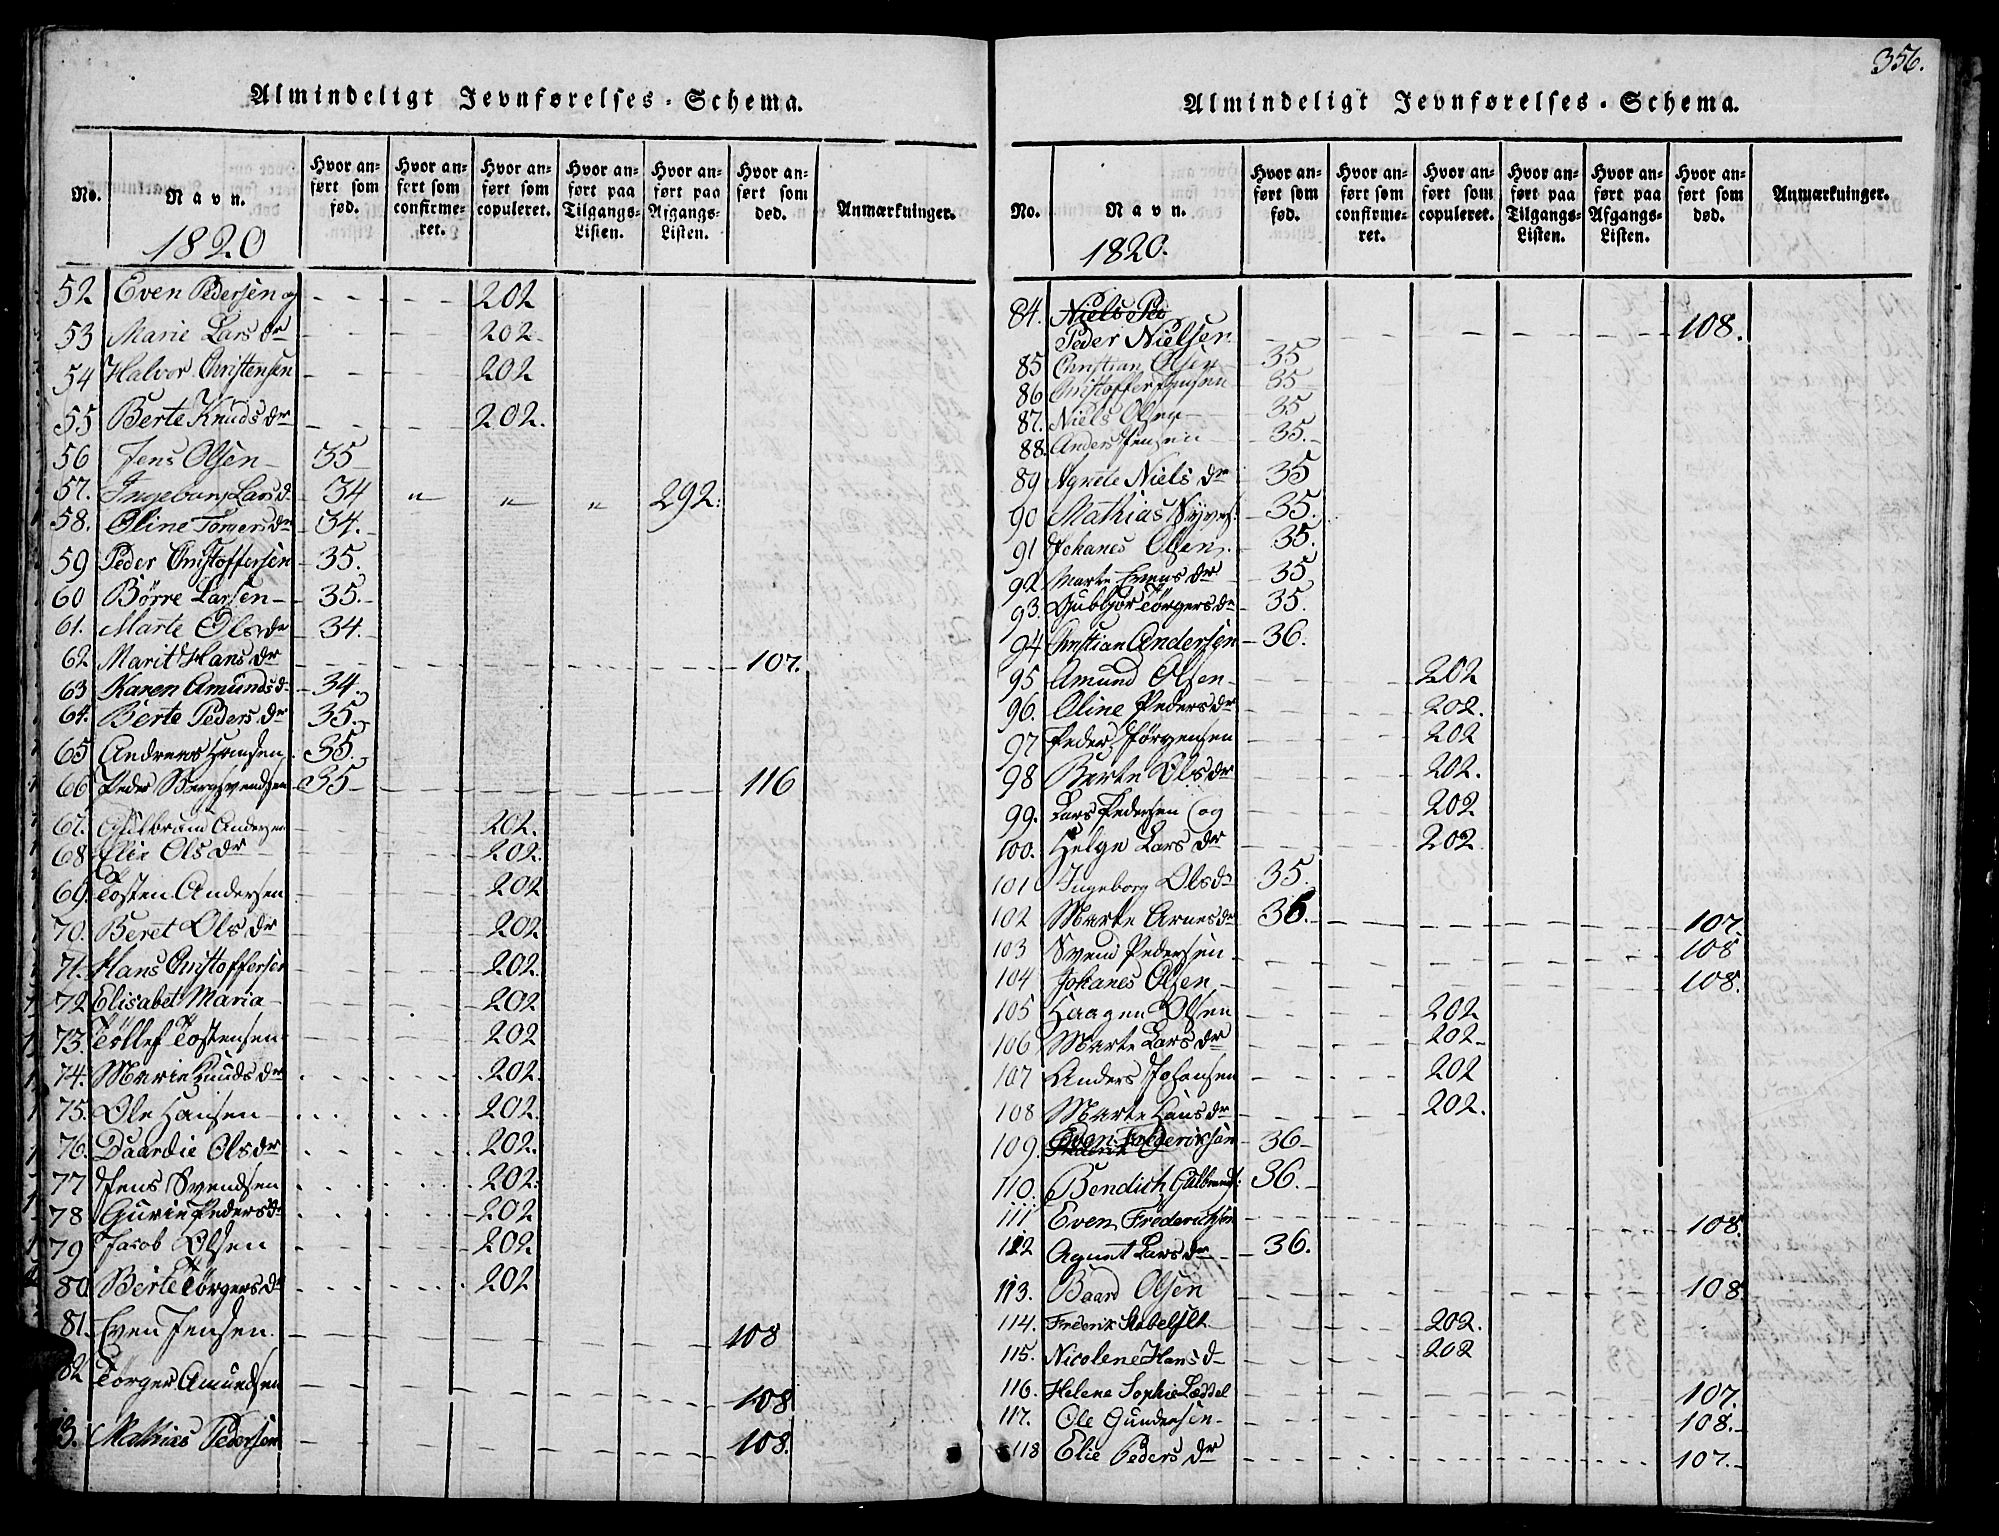 356.
Almindeligt Jevnførelses-Schema.
No. Navn. Hvor anført som fød. Hvor anført som confirmeret. Hvor anført som copuleret. Hvor anført paa Tilgangs-Listen. Hvor anført paa Afgangs-Listen. Hvor anført som død. Anmærkninger.
1820
52 Even Pedersen og 202
53 Marie Lars dr 202
54 Halvor Christensen 202
55 Berte Knuds dr 202.
56 Jens Olsen 35
57. Ingeborg Lars d 34 " " " 292.
58. Oline Torgers dr 34.
59 Peder Christoffersen 35.
60 Börre Larsen 35.
61. Marte Ols dr 34.
62 Marit Hans dr 107.
63 Karen Amunds d 34.
64. Berte Peders dr 35.
65 Andreas Hansen 35.
66 Peder Bergsvendsen 35 116
67. Gulbrand Andersen 202.
68 Elie Ols dr 202.
69. Tosten Andersen 202
70. Beret Ols dr 202
71. Hans Christoffersen 202
72 Elisabet Maria 202
73. Töllef Tostensen 202
74. Marie Knuds dr 202.
75. Ole Hansen 202.
76. Baardie Ols dr 202.
77 Jens Svendsen 202.
78 Gurie Peders d 202
79 Jacob Olsen 202
80 Berte Törgers d 202
81. Even Jensen. 108
82 Törger Amundsen 108
3. Mathies Pedersen 108.
Almindeligt Jevnførelses-Schema.
No. Navn. Hvor anført som fød. Hvor anført som confirmeret. Hvor anført som copuleret. Hvor anført paa Tilgangs-Listen. Hvor anført paa Afgangs-Listen. Hvor anført som død. Anmærkninger.
1820.
84. Niels Pe
Peder Nielsen 108.
85 Christian Olsen 35
86 Christoffer Jensen 35
87. Niels Olsen 35
88. Anders Jensen 35.
89 Agnete Niels dr 35
90 Mathias Syvers: 35.
91 Johanes Olsen. 35.
92. Marte Evens dr 35
93. Gubbjor Törgers dr 35.
94 Christian Andersen 36.
95 Amund Olsen 202
96. Oline Peders dr 202.
97 Peder Jörgensen 202
98 Berte Ols dr 202.
99. Lars Pedersen og 202
100. Helge Lars dr 202
101 Ingeborg Ols d 35.
102 Marte Arnes dr 36. 107.
103 Svend Pedersen 108
104 Johanes Olsen 108.
105 Haagen Olsen 202
106 Marte Lars dr 202
107 Anders Johansen 202
108 Marte Hans dr 202.
109. Even Frederiksen 36
110. Bendich Gulbrands: 36.
111 Even Frederichsen 108.
112 Agnet Lars dr 36.
113. Baard Olsen 108
114. Frederik Stabelfelt 202.
115. Nicolene Hans d 202
116. Helene Sophie Læddel 107.
117. Ole Gundersen 108.
118 Elie Peders dr 107.